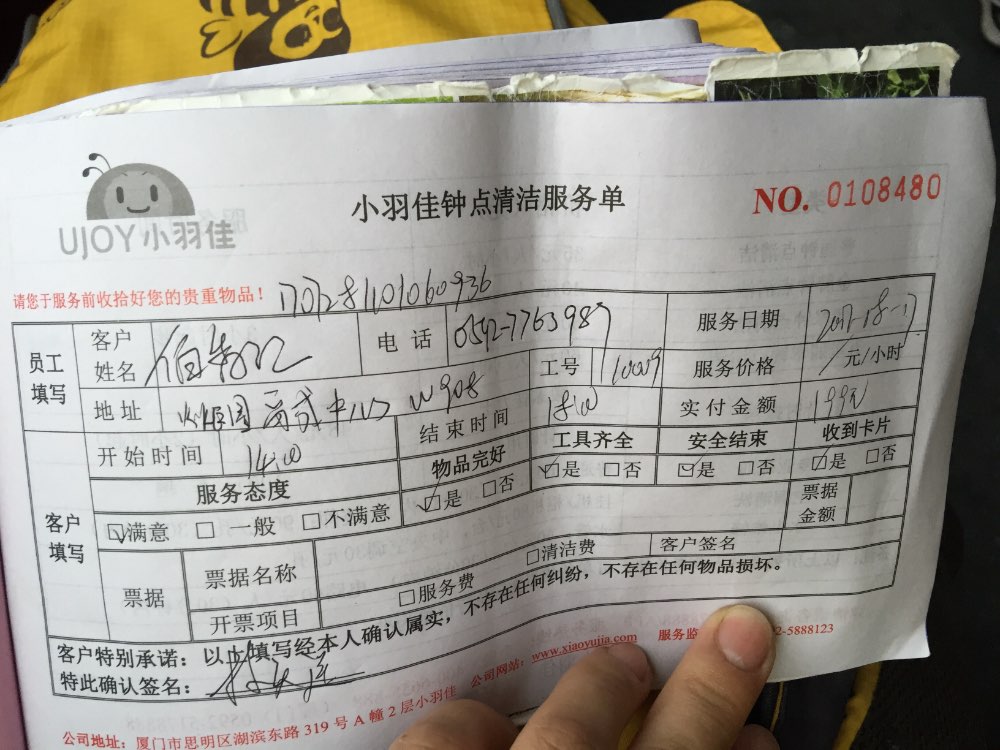 UJOY小羽佳
小羽佳钟点清洁服务单
NO. 0108480
请您于服务前收拾好您的贵重物品！
员工填写
客户姓名
电话 0592-7763987
服务日期
工号
服务价格 /元/小时
地址 W908
实付金额 199元
开始时间 14:00
结束时间 18:00
客户填写
服务态度
物品完好
工具齐全
安全结束
收到卡片
满意 一般 不满意
是 否
是 否
是 否
是 否
票据
票据名称
票据金额
开票项目
服务费
清洁费
客户签名
客户特别承诺：以上填写经本人确认属实，不存在任何纠纷，不存在任何物品损坏。
特此确认签名：
公司地址：厦门市思明区湖滨东路319号A幢2层小羽佳 公司网站：www.xiaoyujia.com 服务监 2-5888123